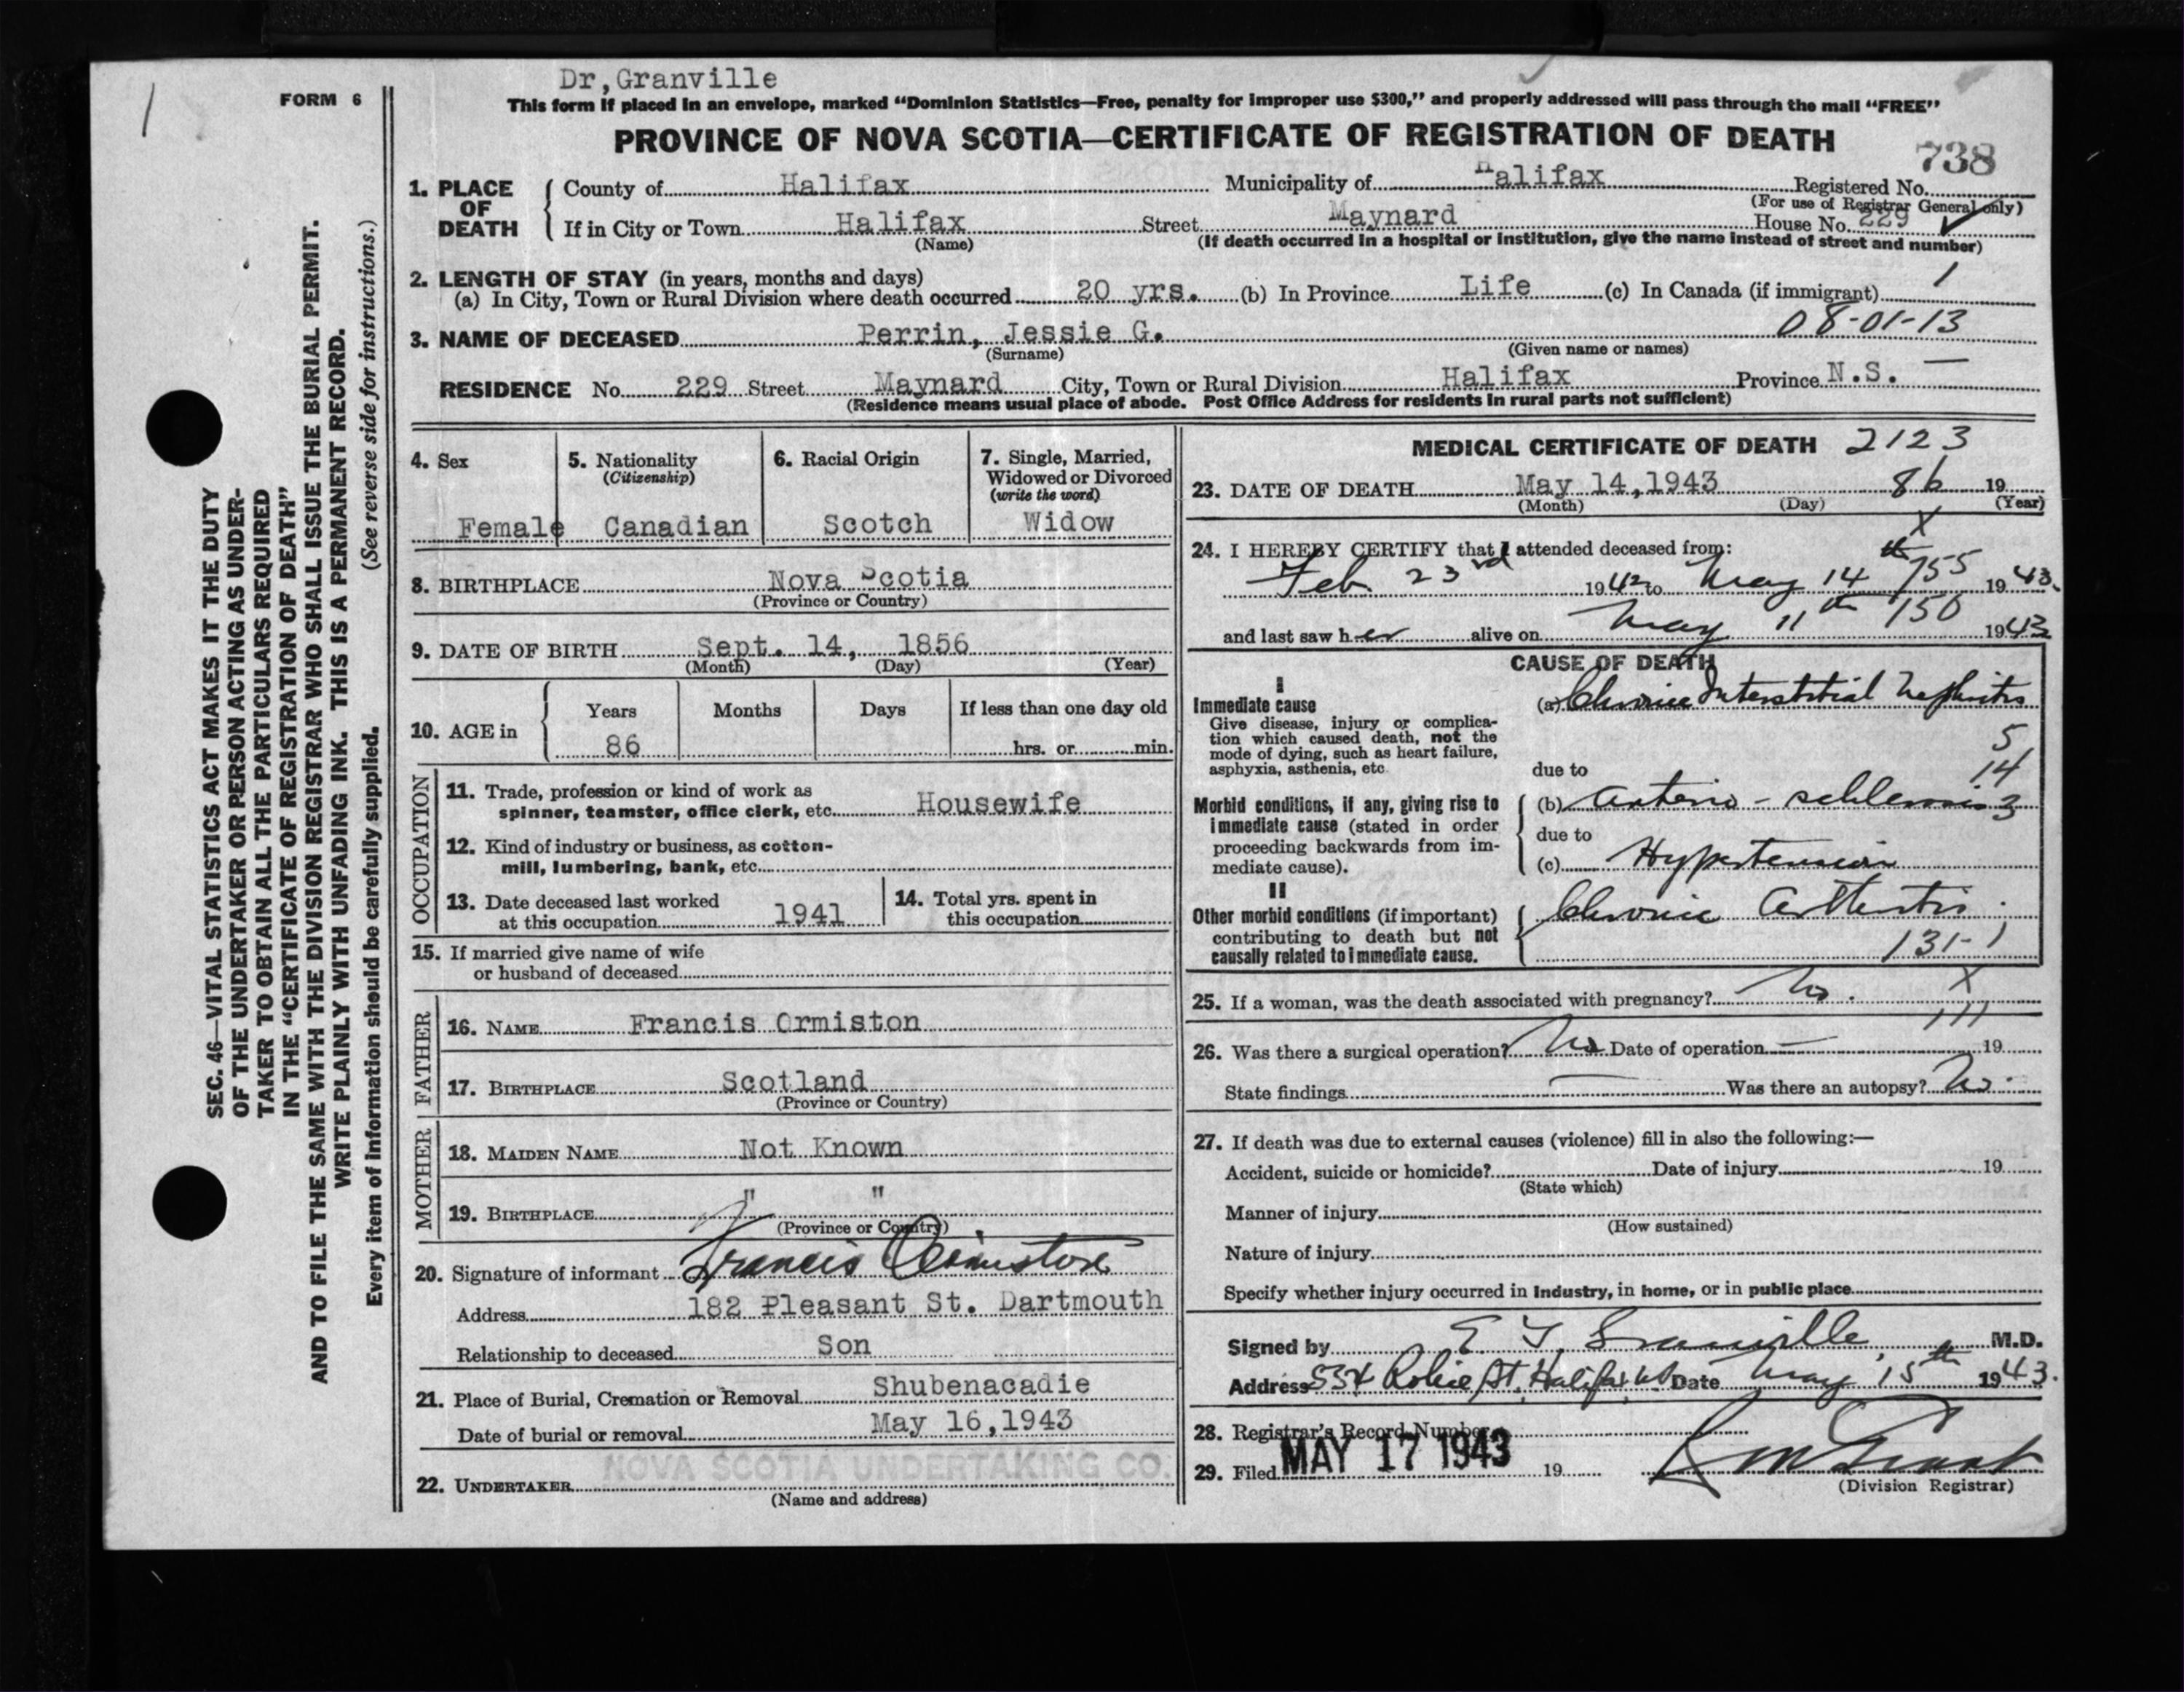 Dr,Granville
FORM 6
This form if placed in an envelope, marked “Dominion Statistics—Free, penalty for improper use $300,” and properly addressed will pass through the mail “FREE”
PROVINCE OF NOVA SCOTIA—CERTIFICATE OF REGISTRATION OF DEATH
738
1. PLACE OF DEATH
County of Halifax Municipality of Halifax Registered No.
(For use of Registrar General only)
If in City or Town Halifax Street Maynard House No. 229
(Name) (If death occurred in a hospital or institution, give the name instead of street and number)
2. LENGTH OF STAY (in years, months and days)
(a) In City, Town or Rural Division where death occurred 20 yrs. (b) In Province Life (c) In Canada (if immigrant) 1
08-01-13
3. NAME OF DECEASED Perrin, Jessie G.
(Surname) (Given name or names)
RESIDENCE No. 229 Street Maynard City, Town or Rural Division Halifax Province N.S. —
(Residence means usual place of abode. Post Office Address for residents in rural parts not sufficient)
4. Sex
Female
5. Nationality
(Citizenship)
Canadian
6. Racial Origin
Scotch
7. Single, Married,
Widowed or Divorced
(write the word)
Widow
8. BIRTHPLACE Nova Scotia
(Province or Country)
9. DATE OF BIRTH Sept. 14, 1856
(Month) (Day) (Year)
10. AGE in
Years Months Days If less than one day old
86 hrs. or min.
OCCUPATION
11. Trade, profession or kind of work as
spinner, teamster, office clerk, etc. Housewife
12. Kind of industry or business, as cotton-
mill, lumbering, bank, etc.
13. Date deceased last worked
at this occupation 1941
14. Total yrs. spent in
this occupation
15. If married give name of wife
or husband of deceased
FATHER
16. NAME Francis Ormiston
17. BIRTHPLACE Scotland
(Province or Country)
MOTHER
18. MAIDEN NAME Not Known
19. BIRTHPLACE " "
(Province or Country)
20. Signature of informant Francis Ormiston
Address 182 Pleasant St. Dartmouth
Relationship to deceased Son
21. Place of Burial, Cremation or Removal Shubenacadie
Date of burial or removal May 16,1943
22. UNDERTAKER NOVA SCOTIA UNDERTAKING CO.
(Name and address)
MEDICAL CERTIFICATE OF DEATH 2123
23. DATE OF DEATH May 14,1943 86 19
(Month) (Day) (Year)
X
24. I HEREBY CERTIFY that I attended deceased from:
Feb 23rd 1942 to May 14th 755 1943.
and last saw her alive on May 11th 150 1943
CAUSE OF DEATH
I
Immediate cause
Give disease, injury or complica-
tion which caused death, not the
mode of dying, such as heart failure,
asphyxia, asthenia, etc.
(a) Chronic Interstitial Nephritis
5
14
due to
Morbid conditions, if any, giving rise to
immediate cause (stated in order
proceeding backwards from im-
mediate cause).
(b) Arterio - 3
due to
(c) Hypertension
II
Other morbid conditions (if important)
contributing to death but not
causally related to immediate cause.
Chronic Arthritis.
131-1
25. If a woman, was the death associated with pregnancy? No. X
111
26. Was there a surgical operation? No Date of operation — 19
State findings — Was there an autopsy? No.
27. If death was due to external causes (violence) fill in also the following:—
Accident, suicide or homicide? Date of injury 19
(State which)
Manner of injury
(How sustained)
Nature of injury
Specify whether injury occurred in industry, in home, or in public place
Signed by E. Granville M.D.
Address 554 Robie St, Halifax Date May 15th 1943.
28. Registrar's Record Number
29. Filed MAY 17 1943 19
(Division Registrar)
SEC. 46—VITAL STATISTICS ACT MAKES IT THE DUTY
OF THE UNDERTAKER OR PERSON ACTING AS UNDER-
TAKER TO OBTAIN ALL THE PARTICULARS REQUIRED
IN THE “CERTIFICATE OF REGISTRATION OF DEATH”
AND TO FILE THE SAME WITH THE DIVISION REGISTRAR WHO SHALL ISSUE THE BURIAL PERMIT.
WRITE PLAINLY WITH UNFADING INK. THIS IS A PERMANENT RECORD.
(See reverse side for instructions.)
Every item of information should be carefully supplied.